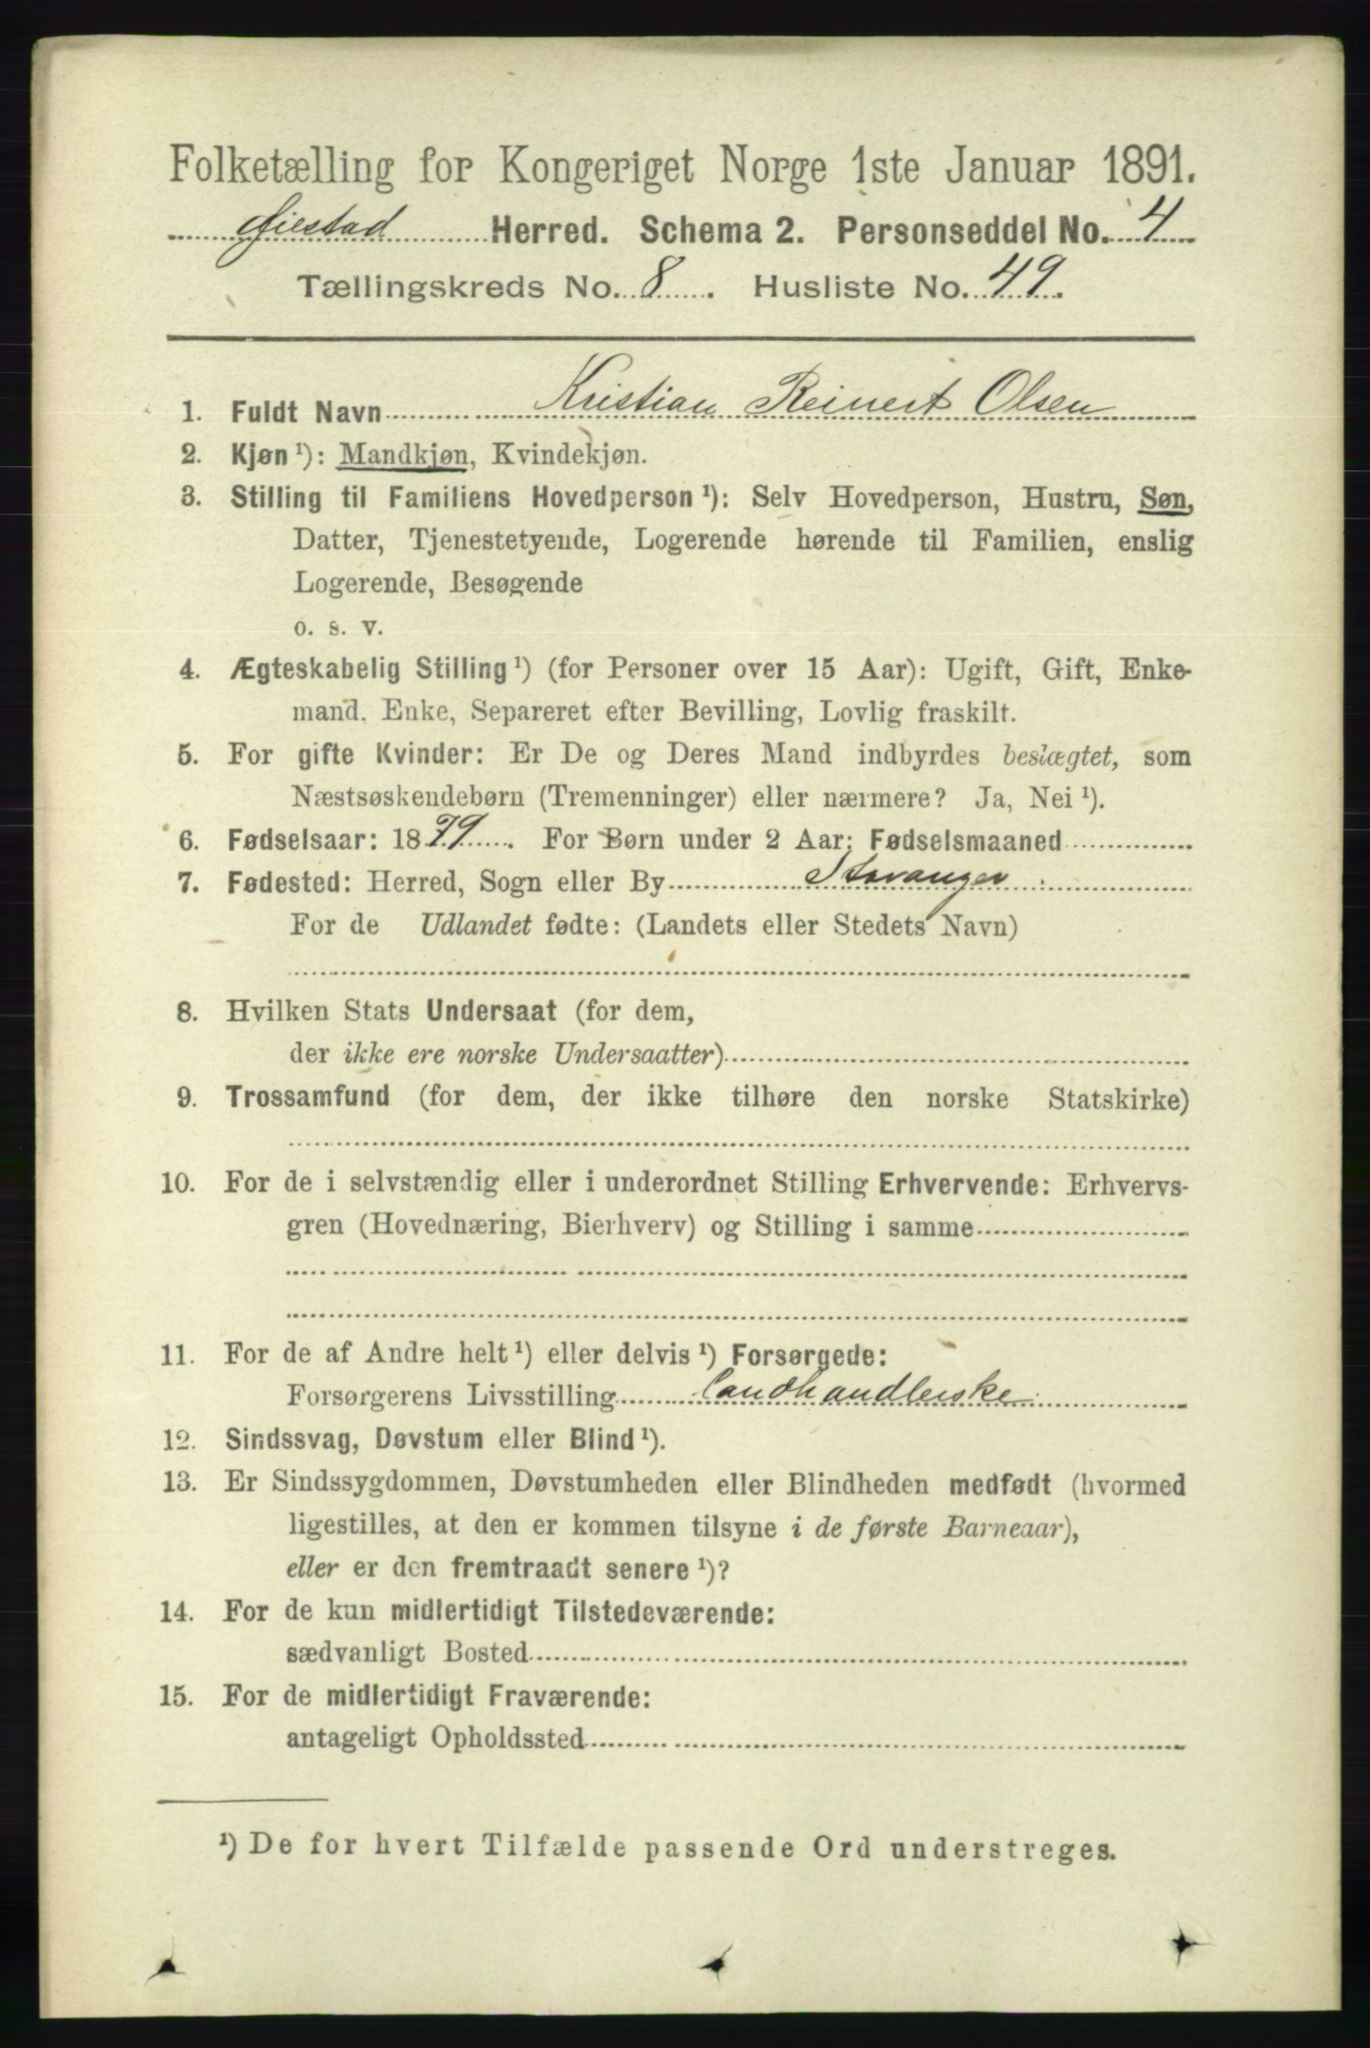 Folketælling for Kongeriget Norge 1ste Januar 1891.
Øiestad Herred. Schema 2. Personseddel No. 4
Tællingskreds No. 8. Husliste No. 49.
1. Fuldt Navn Kristian Reinert Olsen
2. Kjøn ¹): Mandkjøn, Kvindekjøn.
3. Stilling til Familiens Hovedperson ¹): Selv Hovedperson, Hustru, Søn,
Datter, Tjenestetyende, Logerende hørende til Familien, enslig
Logerende, Besøgende
o. s. v.
4. Ægteskabelig Stilling ¹) (for Personer over 15 Aar): Ugift, Gift, Enke-
mand, Enke, Separeret efter Bevilling, Lovlig fraskilt.
5. For gifte Kvinder: Er De og Deres Mand indbyrdes beslægtet, som
Næstsøskendebørn (Tremenninger) eller nærmere? Ja, Nei ¹).
6. Fødselsaar: 1879. For Børn under 2 Aar: Fødselsmaaned
7. Fødested: Herred, Sogn eller By Stavanger
For de Udlandet fødte: (Landets eller Stedets Navn)
8. Hvilken Stats Undersaat (for dem,
der ikke ere norske Undersaatter)
9. Trossamfund (for dem, der ikke tilhøre den norske Statskirke)
10. For de i selvstændig eller i underordnet Stilling Erhvervende: Erhvervs-
gren (Hovednæring, Bierhverv) og Stilling i samme
11. For de af Andre helt ¹) eller delvis ¹) Forsørgede:
Forsørgerens Livsstilling Landhandlerske
12. Sindssvag, Døvstum eller Blind ¹).
13. Er Sindssygdommen, Døvstumheden eller Blindheden medfødt (hvormed
ligestilles, at den er kommen tilsyne i de første Barneaar),
eller er den fremtraadt senere ¹)?
14. For de kun midlertidigt Tilstedeværende:
sædvanligt Bosted
15. For de midlertidigt Fraværende:
antageligt Opholdssted
¹) De for hvert Tilfælde passende Ord understreges.